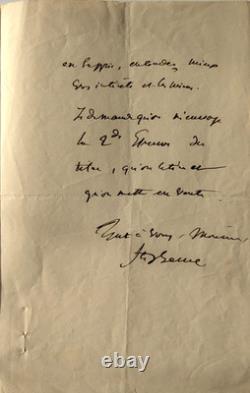 en supprim, entendez mieux
vos intérêts et les miens.
Je demande qu'on m'envoye
la 2de Épreuve du
titre, qu'on le tire et
qu'on mette en vente.
Tout à vous, Monsieur
Ste Beuve
ebay